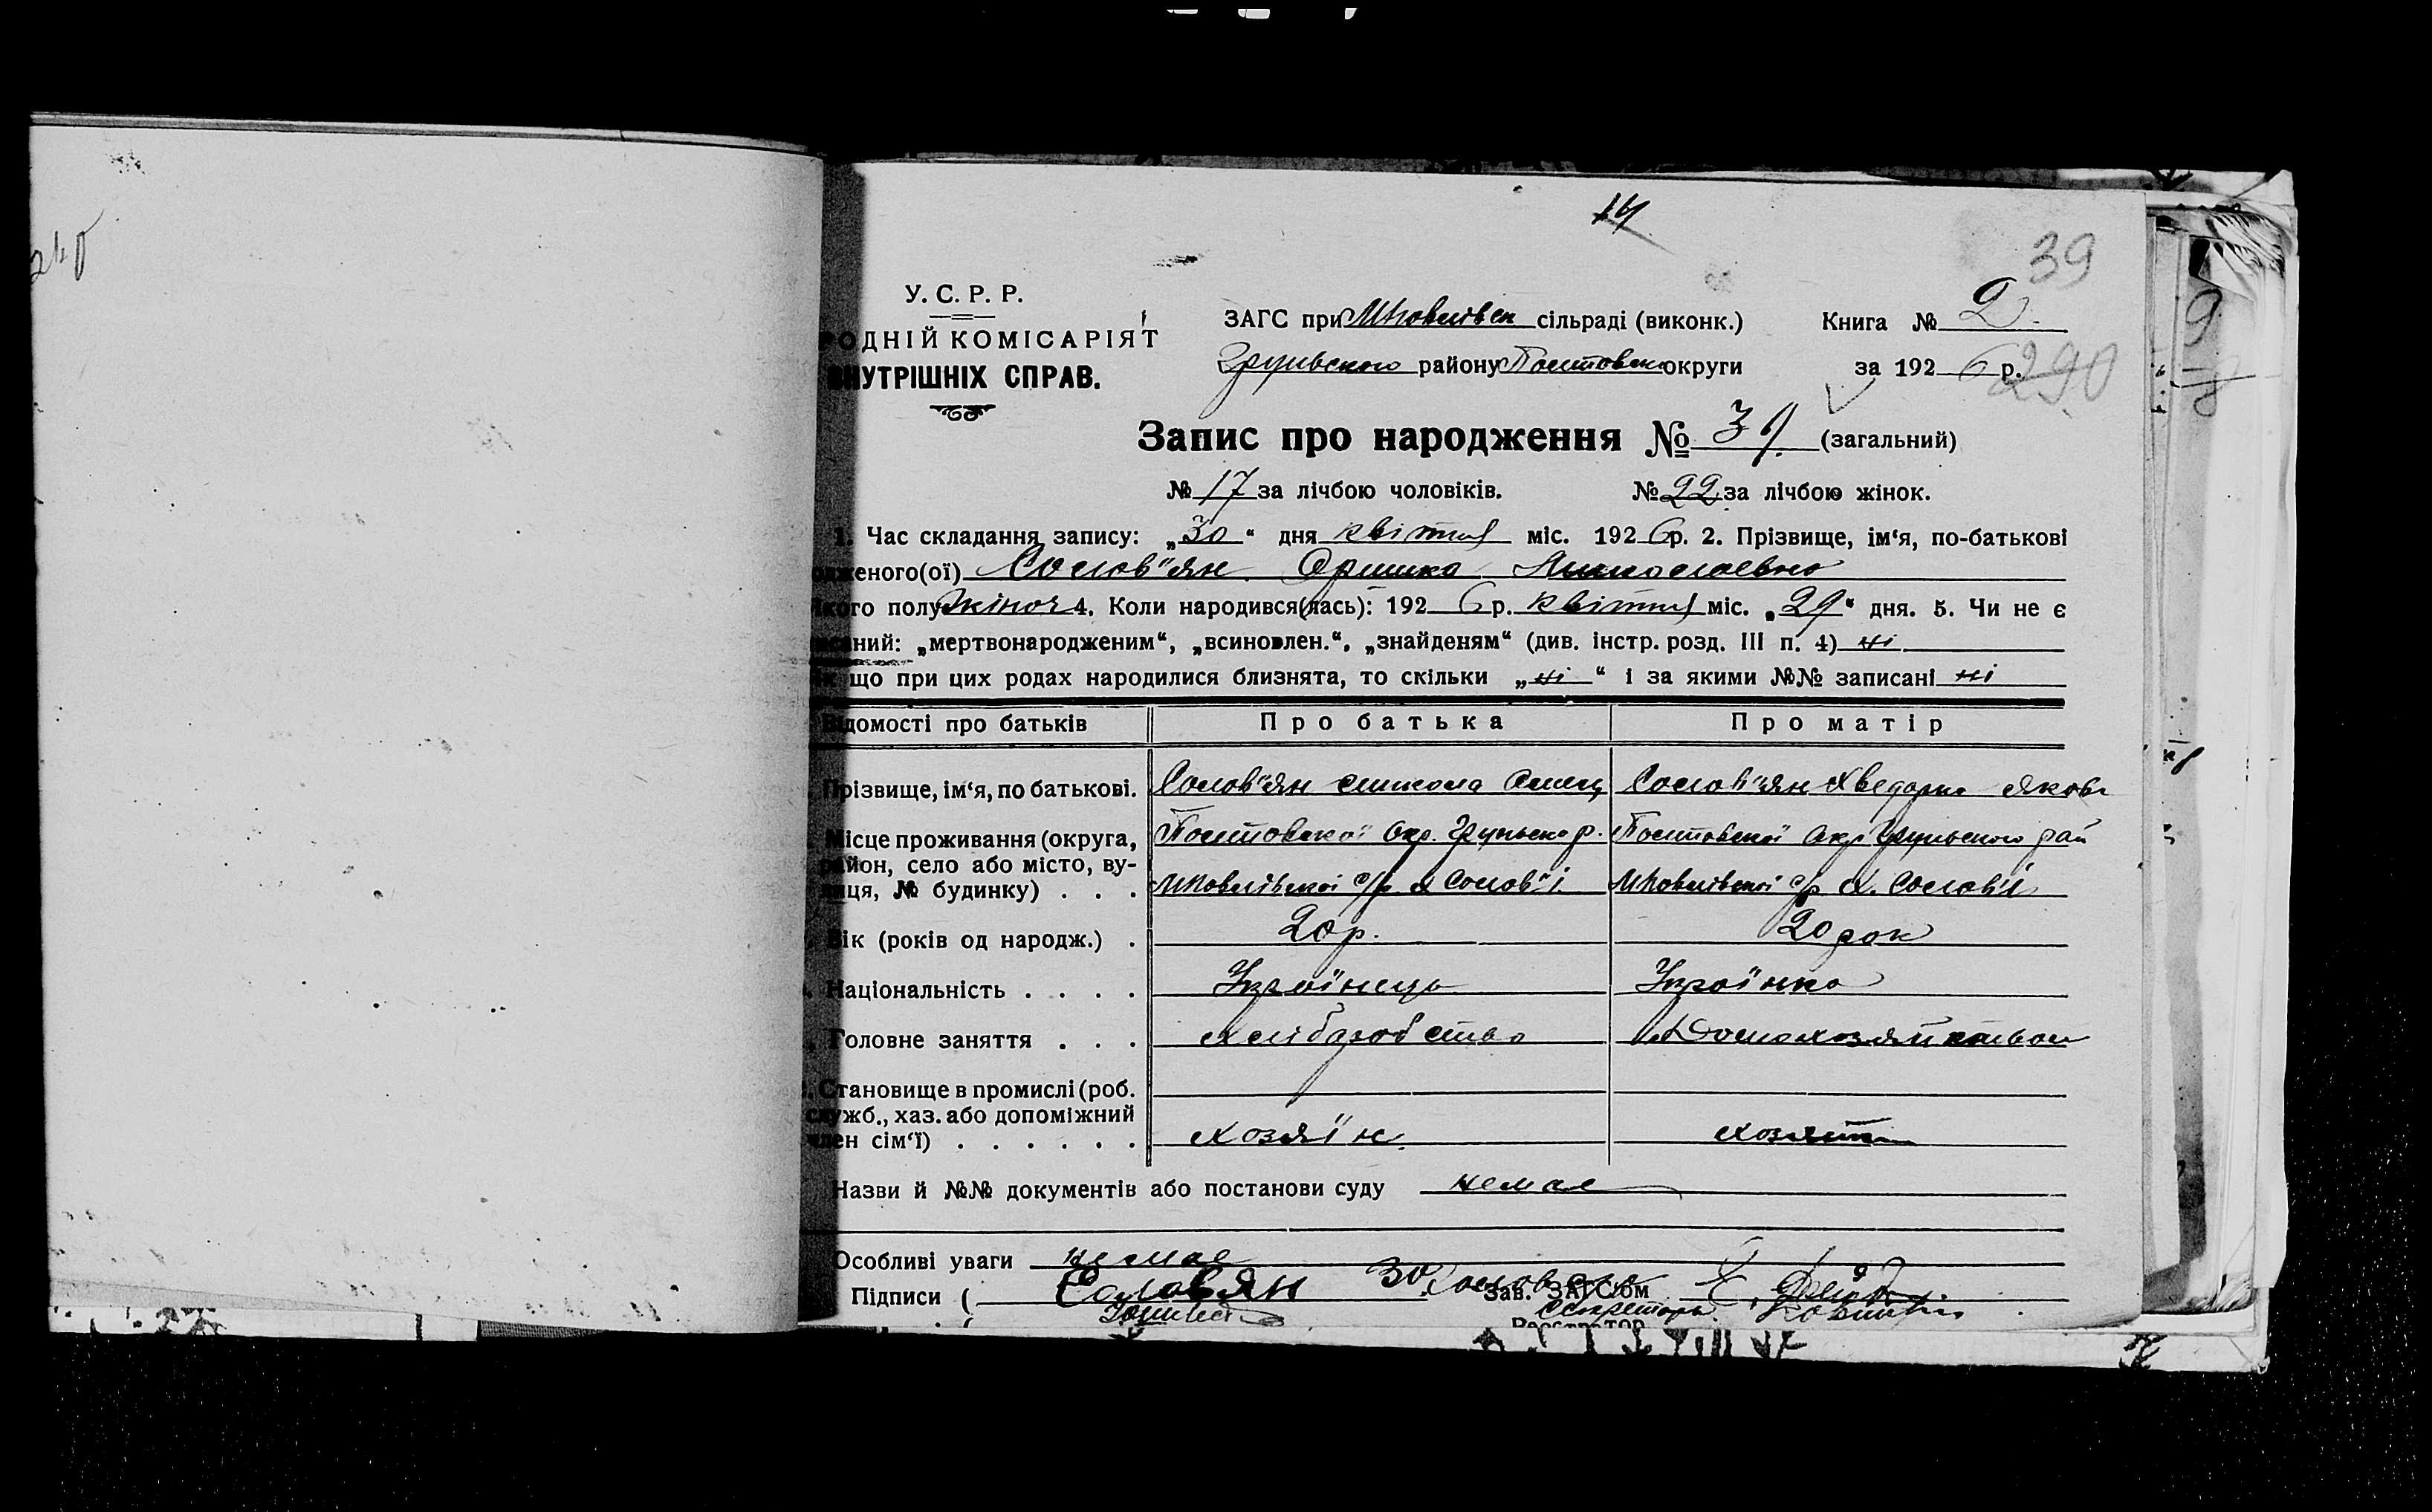 14
39
У. С. Р. Р.
РОДНІЙ КОМІСАРІЯТ
ВНУТРІШНІХ СПРАВ.
ЗАГС при сільраді (виконк.)
Книга № 2
району округи
за 1926 р.
290
Запис про народження № 39 (загальний)
№ 17 за лічбою чоловіків. № 22 за лічбою жінок.
1. Час складання запису: „30“ дня квітня міс. 1926 р. 2. Прізвище, ім‘я, по-батькові
одженого(ої) Солов"ян Оришка Миколаевна
якого полу жіноч 4. Коли народився(лась): 1926 р. квітня міс. „29“ дня. 5. Чи не є
писаний: „мертвонародженим“, „всиновлен.“, „знайденям“ (див. інстр. розд. III п. 4) ні
Як що при цих родах народилися близнята, то скільки „ні“ і за якими №№ записані ні
Відомості про батьків Про батька Про матір
Прізвище, ім‘я, по батькові. Солов"ян Микола Солов"ян Хведорка Якова
Місце проживання (округа, Полтовської Окр. Грунського р. Полтовської Окр Грунського рай
район, село або місто, ву-
лиця, № будинку) . . . с/р х Солов"ї с/р х. Солов"ї
Вік (років од народж.) . 20 р. 20 рок
Національність . . . . Украінець Украінка
Головне заняття . . . хліборобство Домохозяйством
Становище в промислі (роб.
служб., хаз. або допоміжний
член сім‘ї) . . . . . . хозяїн хозяйка
Назви й №№ документів або постанови суду немае
Особливі уваги немае
Підписи ( Солавян Зав. ЗАГС‘ом
секретарь
Реєстратор